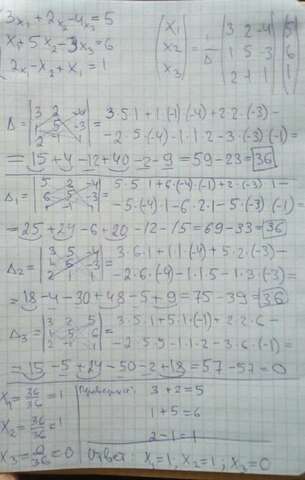 3x₁ + 2x₂ - 4x₃ = 5
x₁ + 5x₂ - 3x₃ = 6
2x₁ - x₂ + x₃ = 1
x₁
x₂
x₃
= 1/Δ
3 2 -4
1 5 -3
2 -1 1
5
6
1
Δ = |3 2 -4; 1 5 -3; 2 -1 1| = 3·5·1 + 1·(-1)·(-4) + 2·2·(-3) -
- 2·5·(-4) - 1·1·2 - 3·(-3)·(-1) =
= 15 + 4 - 12 + 40 - 2 - 9 = 59 - 23 = 36
Δ₁ = |5 2 -4; 6 5 -3; 1 -1 1| = 5·5·1 + 6·(-4)·(-1) + 2·(-3)·1 -
- 5·(-4)·1 - 6·2·1 - 5·(-3)·(-1) =
= 25 + 24 - 6 + 20 - 12 - 15 = 69 - 33 = 36
Δ₂ = |3 5 -4; 1 6 -3; 2 1 1| = 3·6·1 + 1·1·(-4) + 5·2·(-3) -
- 2·6·(-4) - 1·1·5 - 1·3·(-3) =
= 18 - 4 - 30 + 48 - 5 + 9 = 75 - 39 = 36
Δ₃ = |3 2 5; 1 5 6; 2 -1 1| = 3·5·1 + 5·1·(-1) + 2·2·6 -
- 2·5·5 - 1·1·2 - 3·6·(-1) =
= 15 - 5 + 24 - 50 - 2 + 18 = 57 - 57 = 0
x₁ = 36/36 = 1
Проверка:
3 + 2 = 5
x₂ = 36/36 = 1
1 + 5 = 6
2 - 1 = 1
x₃ = 0/36 = 0
Ответ: x₁ = 1, x₂ = 1, x₃ = 0